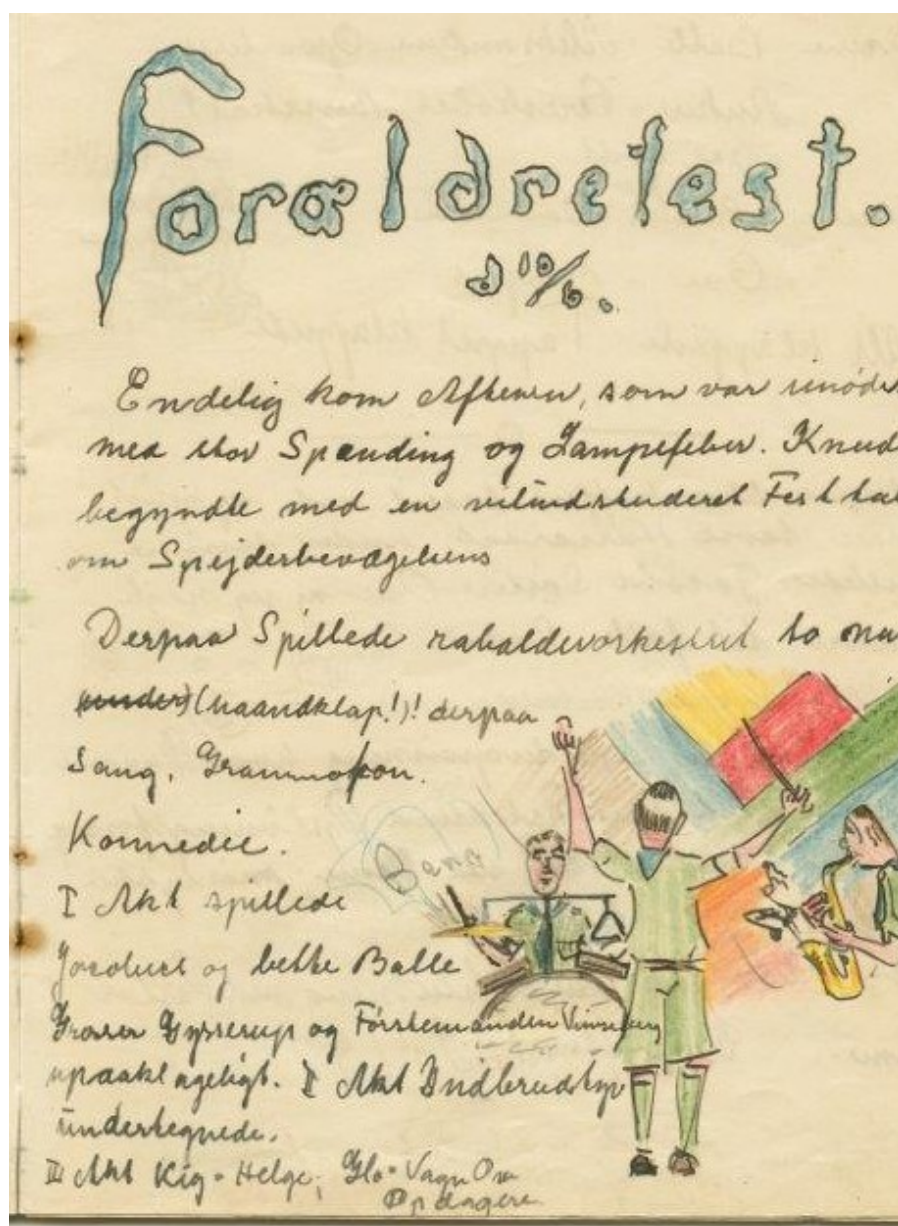 Forældrefest.
d 10/6.
Endelig kom Aftenen, som var imøde
med stor Spænding og Lampefeber. Knud
begyndte med en velindstuderet Festtal
om Spejderbevægelsens
Derpaa Spillede rabalderorkestret to nu
(haandklap!)! derpaa
Sang, Grammofon.
Kommedie.
Bang
I Akt spillede
og bette Balle
Grosser Gysserup og Förstemanden
upaaklageligt. II Akt Indbrudstyv
undertegnede.
III Akt Kig - Helge, Glo - Vagn Ove
Opdagere